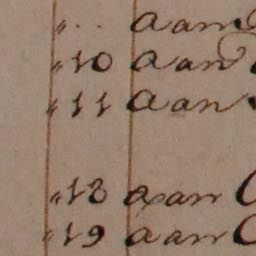 " .. aan
" 10 aan
" 11 aan
" 18 aan
" 19 aan